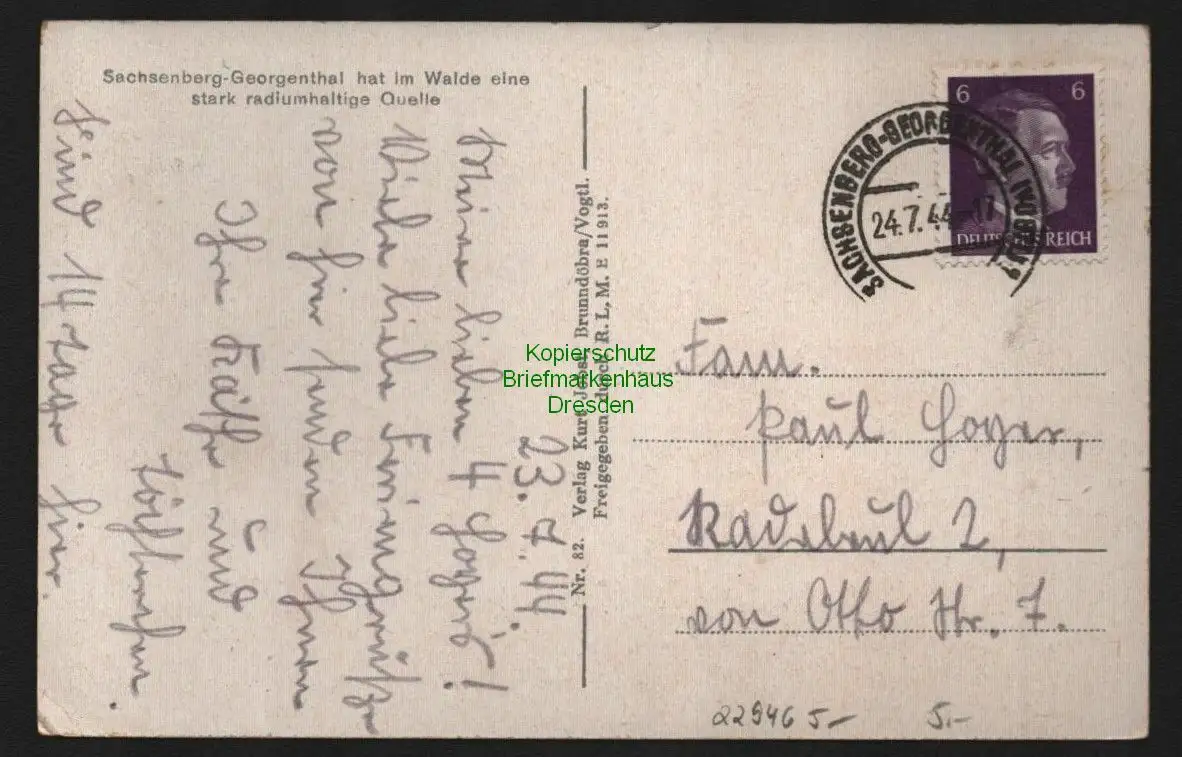 Sachsenberg-Georgenthal hat im Walde eine
stark radiumhaltige Quelle
23.7.44.
Meine lieben 4 Hoyers!
Viele liebe Feriengrüße
von hier senden Ihnen
Ihre Käthe und
Töchterchen.
Sind 14 Tage hier.
Nr. 82. Verlag Kurt Jobst, Brunndöbra/Vogtl.
Freigegeben durch R. L. M. E 11913.
Kopierschutz
Briefmarkenhaus
Dresden
6 6
DEUTSCHES REICH
SACHSENBERG-GEORGENTHAL (VOGTL)
24.7.44-17
Fam.
Paul Hoyer,
Radebeul 2,
von Otto Str. 7.
22946 5.- 5.-